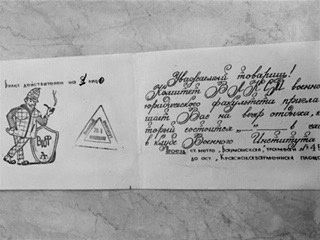 Билет действителен на 1 лицо
Уважаемый товарищ!
Комитет ВЛКСМ военно-
юридического факультета пригла-
шает Вас на вечер отдыха, ко-
торый состоится „ — " в
в клубе Военного Института
Проезд: ст. метро „Бауманская", трамваи № 4
до ост. „Красноказарменная площадь